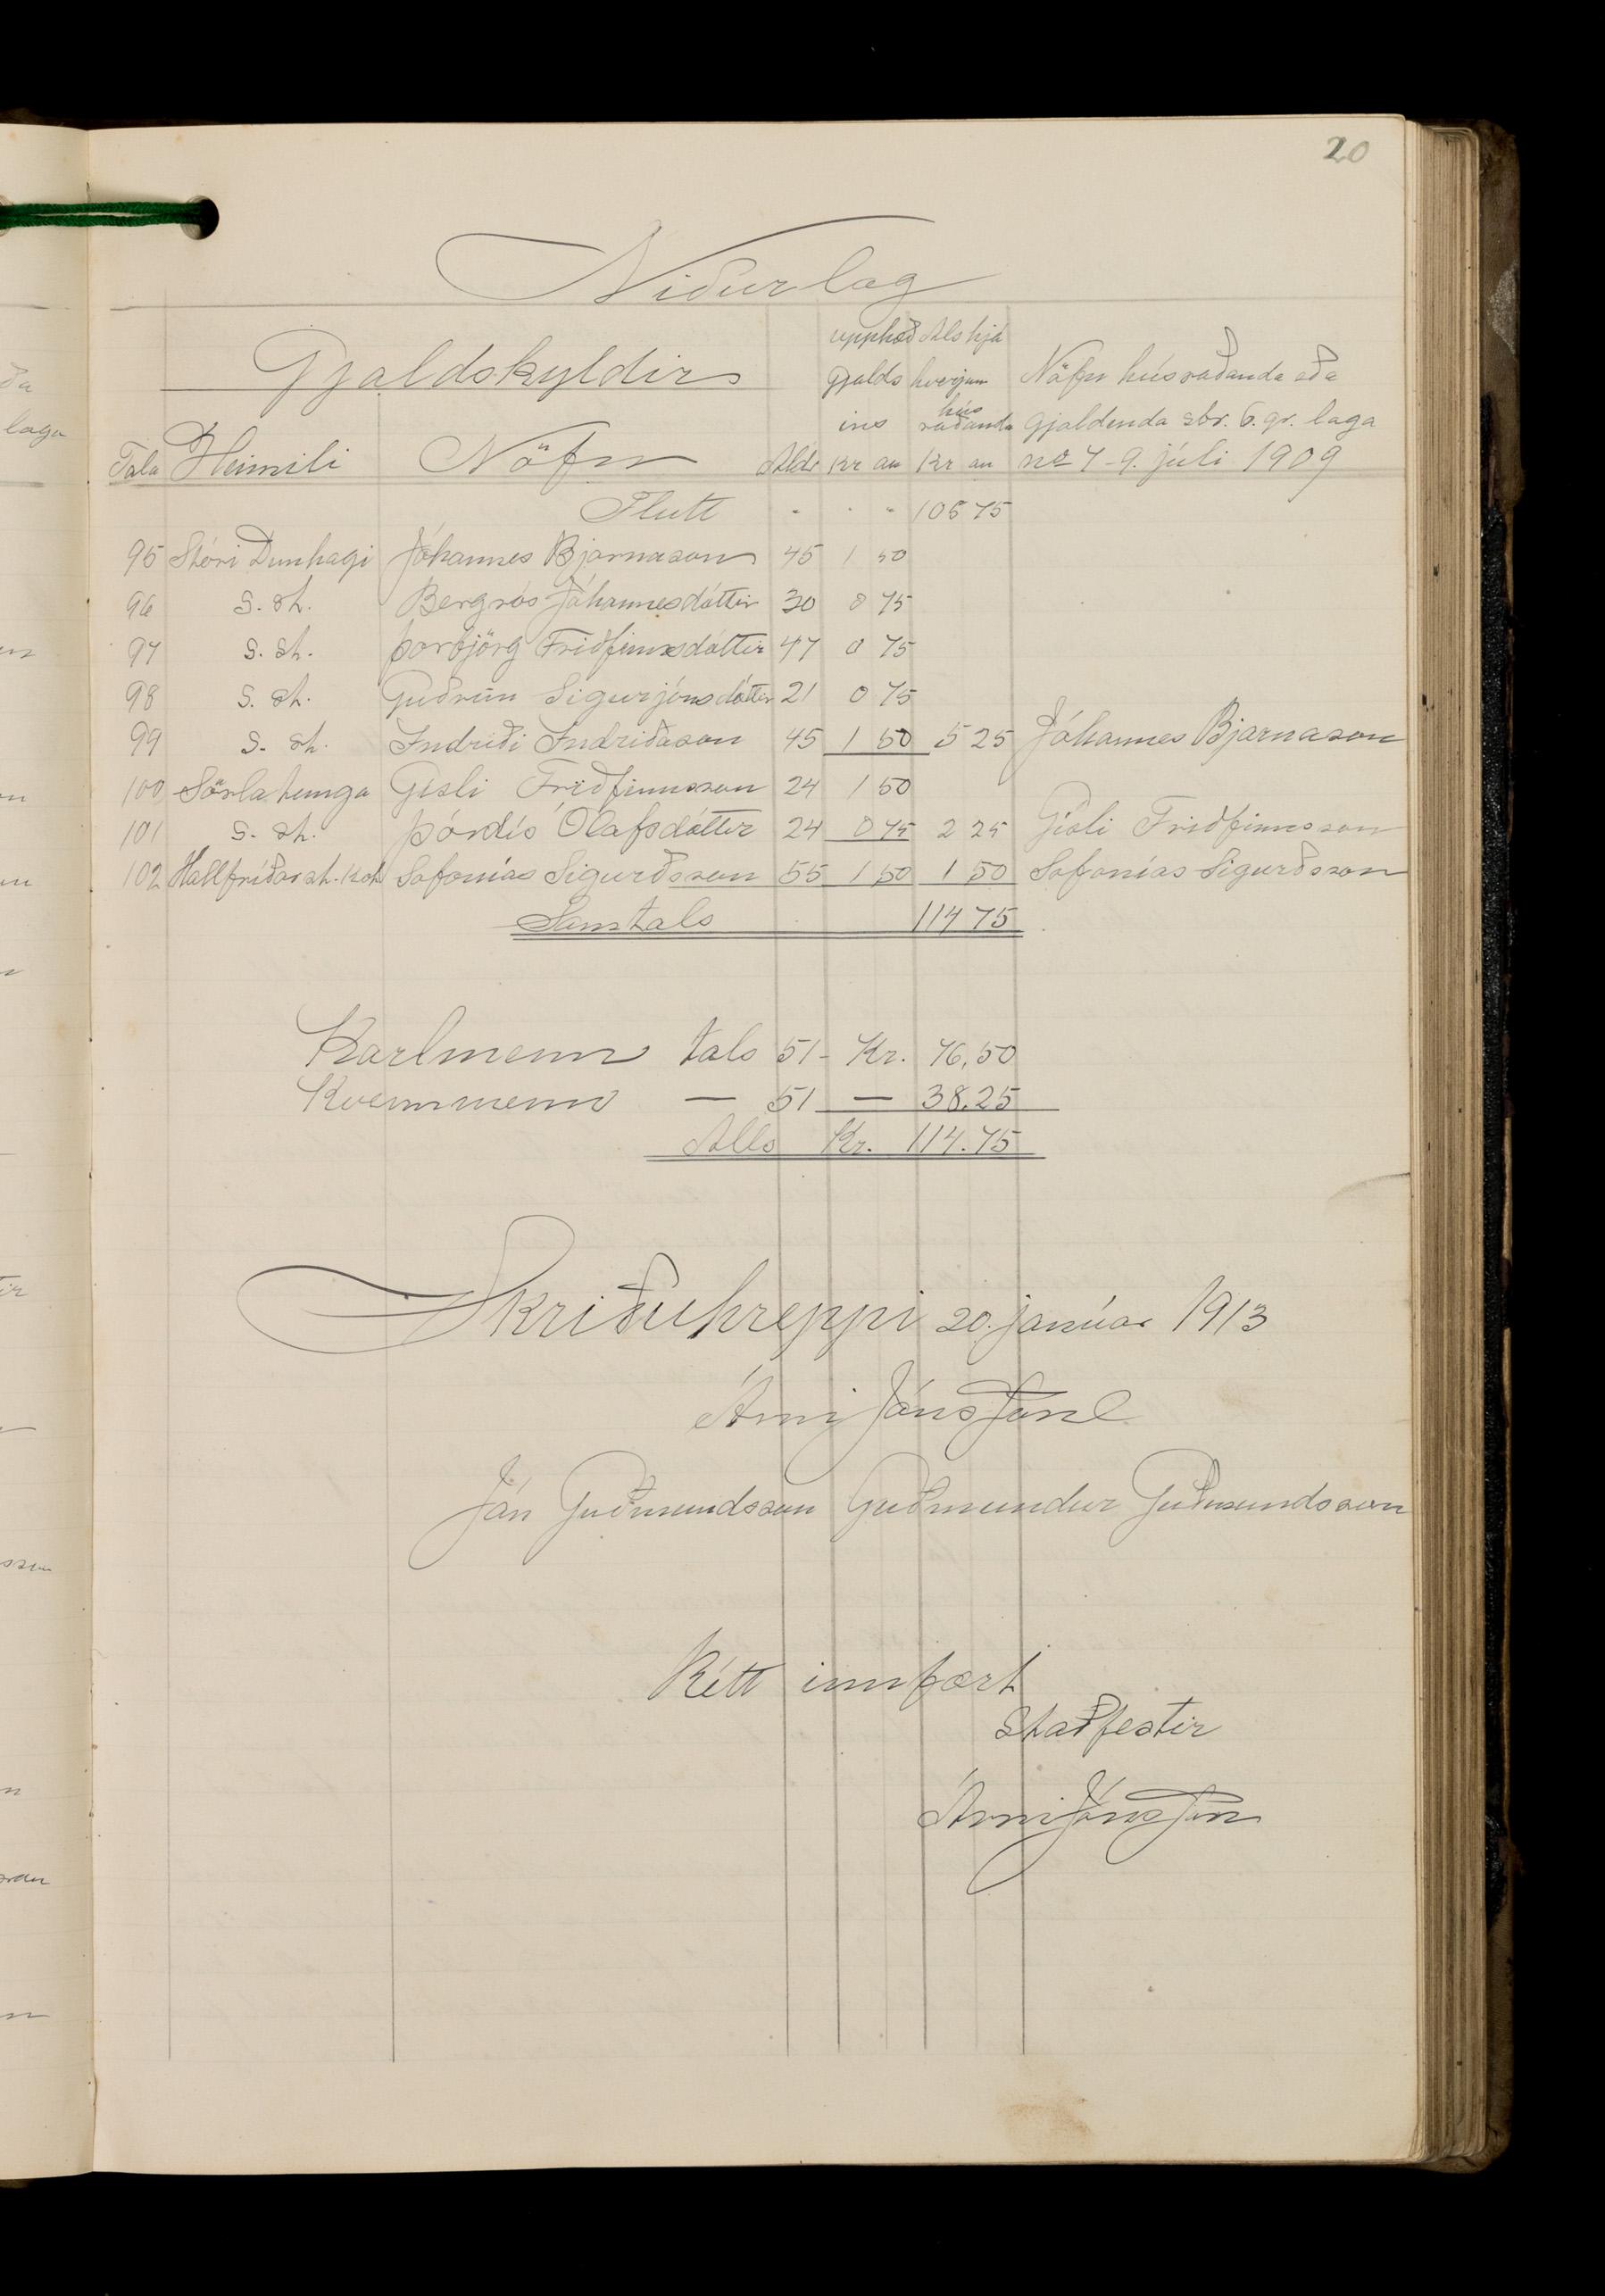 20
Niðurlag
Gjaldskyldir
Tala Heimili Nöfn Aldr upphæð gjalds ins Kr au Als hjá hverjum hús ráðanda Kr au Nöfn húsráðanda eða gjaldenda sbr. 6. gr. laga no 7 - 9. júlí 1909
Flutt " " " 105 75
95 Stóri Dunhagi Jóhannes Bjarnason 45 1 50
96 S. st. Bergrós Jóhannesdóttir 30 0 75
97 S. st. Þorbjörg Friðfinnsdóttir 47 0 75
98 S. st. Guðrún Sigurjónsdóttir 21 0 75
99 S. st. Indriði Indriðason 45 1 50 5 25 Jóhannes Bjarnason
100 Sörlatunga Gísli Friðfinnsson 24 1 50
101 S. st. Þórdís Ólafsdóttir 24 0 75 2 25 Gísli Friðfinnsson
102 Hallfríðarst.kot Sofonías Sigurðsson 55 1 50 1 50 Sofonías Sigurðsson
Samtals 114 75
Karlmenn tals 51 - Kr. 76,50
Kvennmenn — 51 — 38.25
Alls Kr. 114.75
Skriðuhreppi 20. janúar 1913
Árni Jónsson
Jón Guðmundsson Guðmundur Guðmundsson
Rétt innfært
Staðfestir
Árni Jónsson